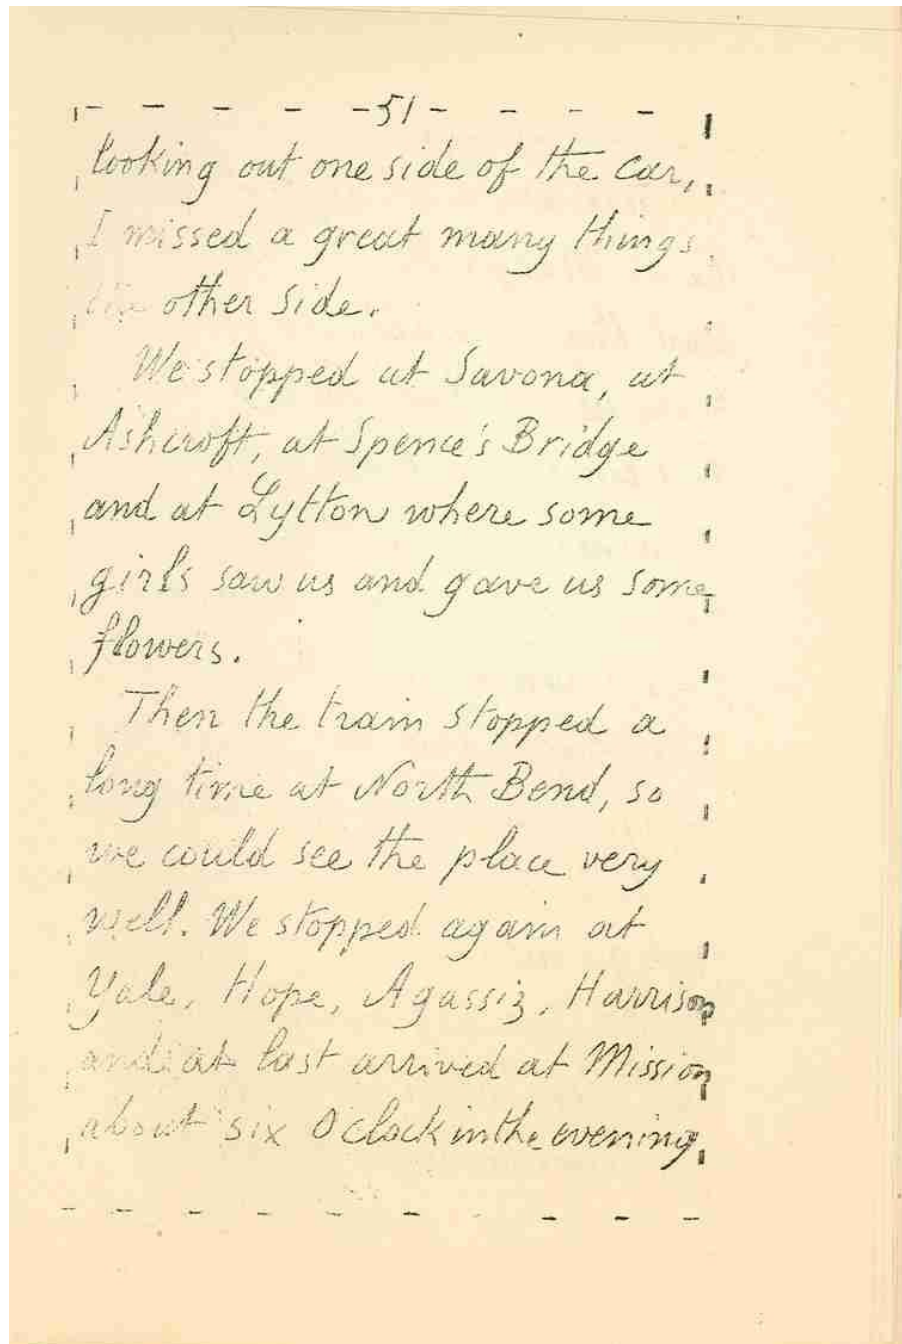 -51-
looking out one side of the car,
I missed a great many things
the other side.
We stopped at Savona, at
Ashcroft, at Spence's Bridge
and at Lytton where some
girls saw us and gave us some
flowers.
Then the train stopped a
long time at North Bend, so
we could see the place very
well. We stopped again at
Yale, Hope, Agassiz, Harrison
and at last arrived at Mission
about six O'clock in the evening.